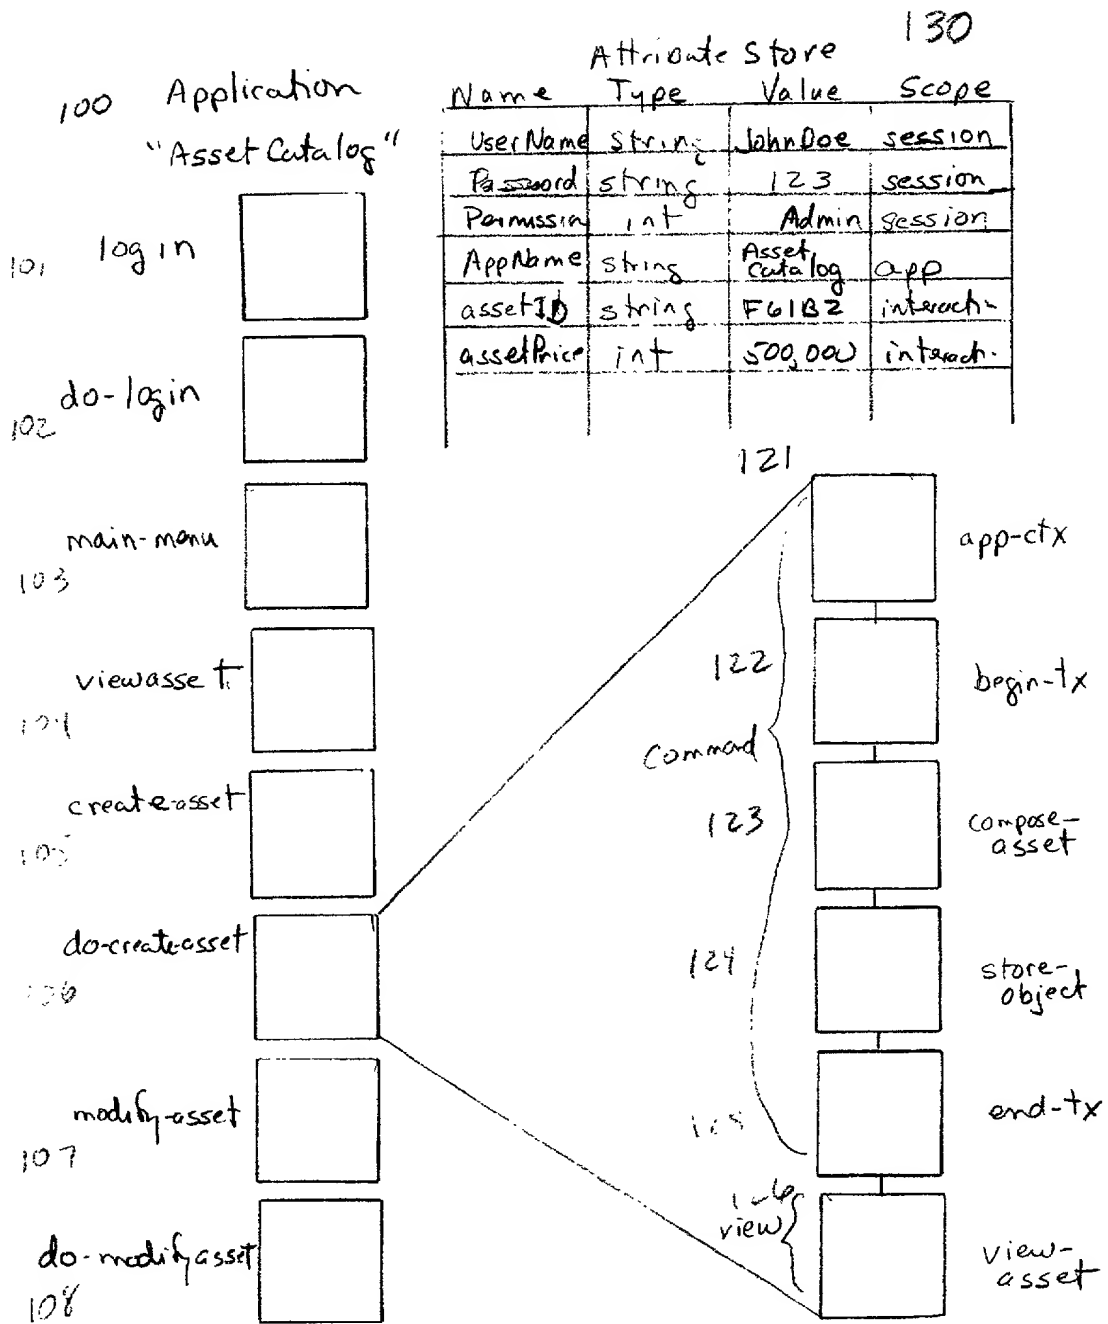 130
Attribute Store
Name Type Value Scope
UserName string JohnDoe session
Password string 123 session
Permission int Admin session
AppName string Asset Catalog app
assetID string F61B2 interacti-
assetPrice int 500,000 interact.
100 Application
"Asset Catalog"
101 login
102 do-login
main-menu
103
viewasset
104
create-asset
105
do-create-asset
106
modify-asset
107
do-modifyasset
108
121
app-ctx
122
begin-tx
Command
123
compose-
asset
124
store-
object
end-tx
view
view-
asset